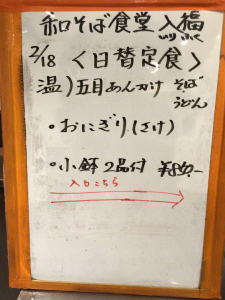 和そば食堂 入福
2/18 〈日替定食〉
温)五目あんかけ そば
うどん
・おにぎり(さけ)
・小鉢2品付 ¥850-
入口こちら